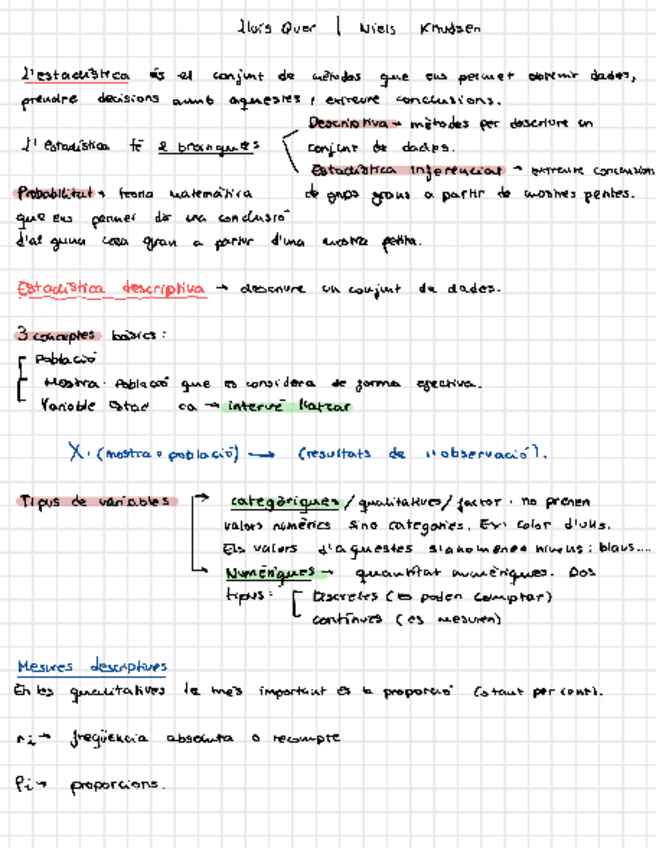 Lluís Quer | Niels Knudsen
L'estadística és el conjunt de mètodes que ens permet obtenir dades,
prendre decisions amb aquestes i extreure conclusions.
L'estadística té 2 branques
Descriptiva → mètodes per descriure un
conjunt de dades.
Estadística Inferencial → extreure conclusions
de grups grans a partir de mostres petites.
Probabilitat → teoria matemàtica
que ens permet dir una conclusió
d'alguna cosa gran a partir d'una mostra petita.
Estadística descriptiva → descriure un conjunt de dades.
3 conceptes bàsics:
Població
Mostra. Població que es considera de forma efectiva.
Variable Estad ca → intervé l'atzar
X: (mostra o població) → (resultats de l'observació).
Tipus de variables
categòriques / qualitatives / factor. no prenen
valors numèrics sino categories. Ex: color d'ulls.
Els valors d'aquestes s'anomenen nivells: blaus....
Numèriques → quantitat numèriques. Dos
tipus: Discretes (es poden comptar)
contínues (es mesuren)
Mesures descriptives
En les qualitatives la més important és la proporció (o tant per cent).
ni → freqüència absoluta o recompte
Pi → proporcions.